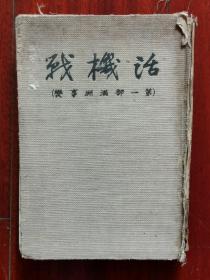 活機戰
(第一部滿洲事變)